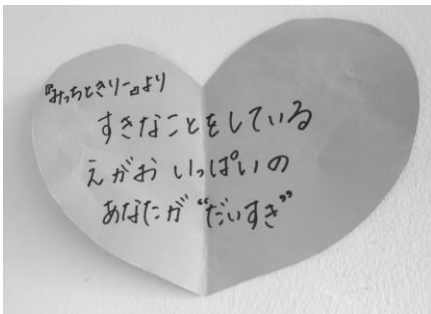 『みっちときりー』より
すきなことをしている
えがおいっぱいの
あなたが“だいすき”